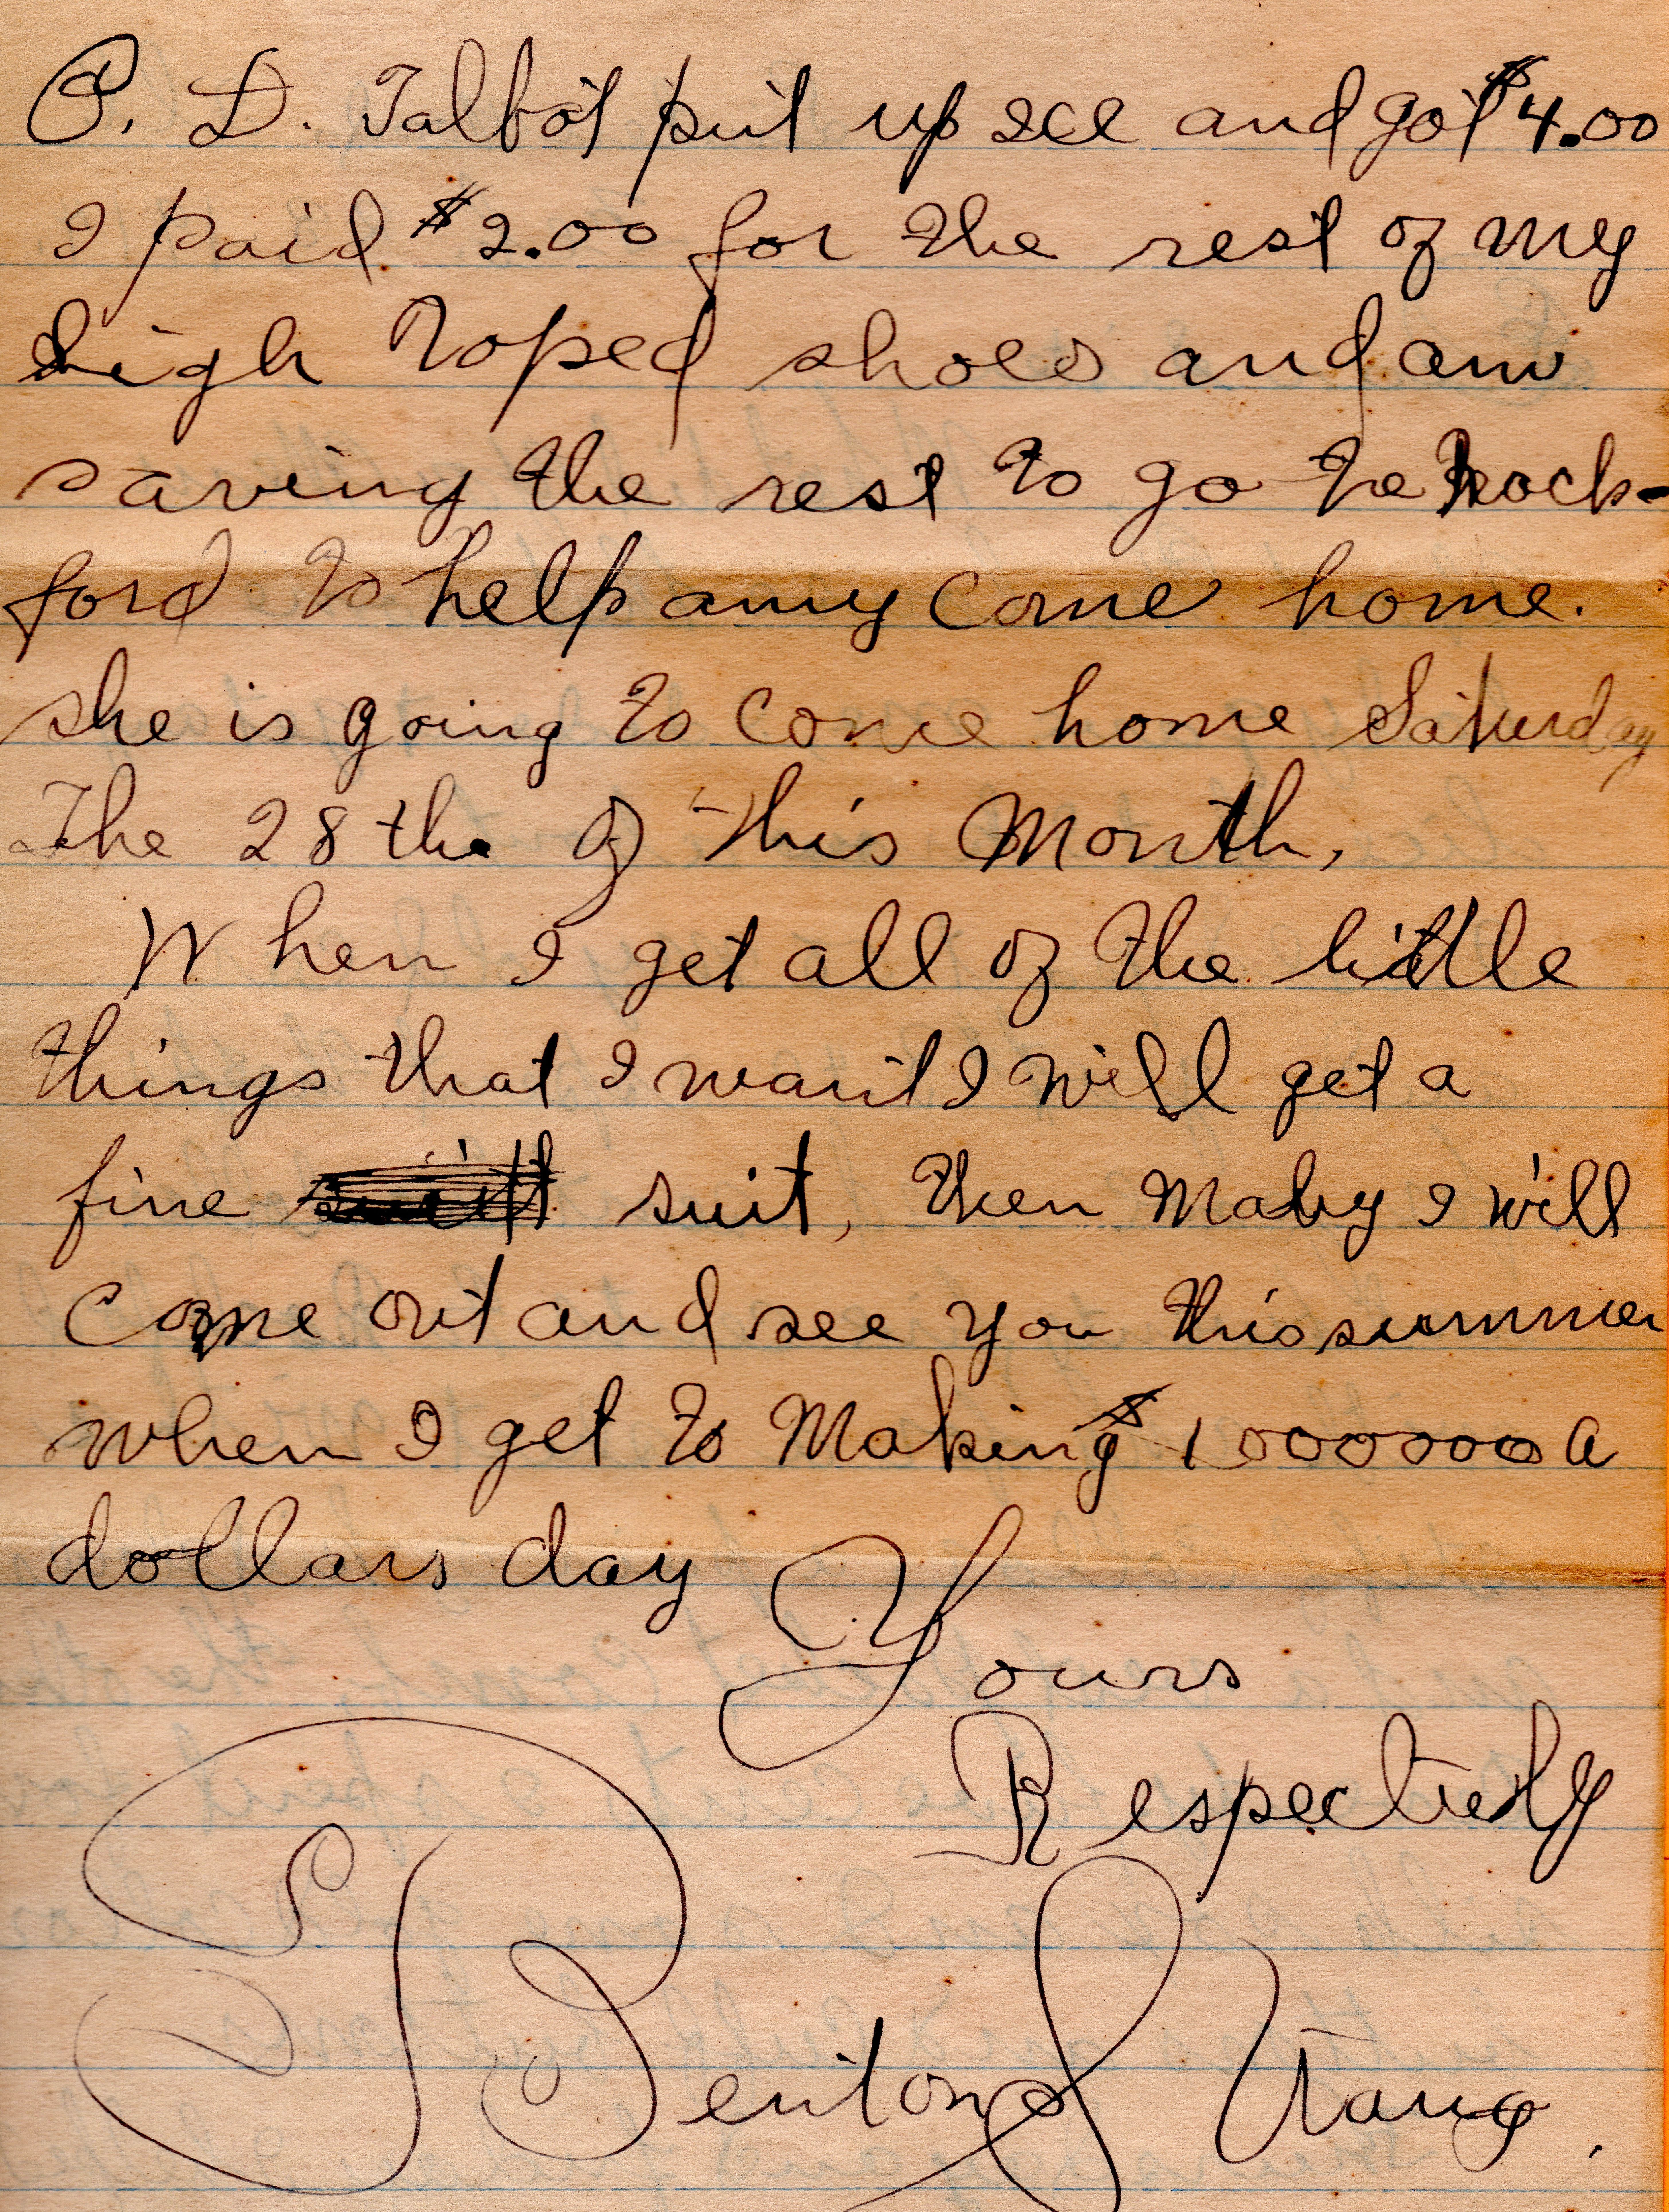 P. L. Talbot put up ice and got $4.00
I paid $2.00 for the rest of my
high toped shoes and am
saving the rest to go to Rock-
ford to help amy come home.
she is going to come home Saturday
The 28 the of this Month,
When I get all of the little
things that I want I will get a
fine suit, then Maby I will
come out and see you this summer
when I get to Making $ 1000000 a
dollars day
Yours
Respectively
Benton